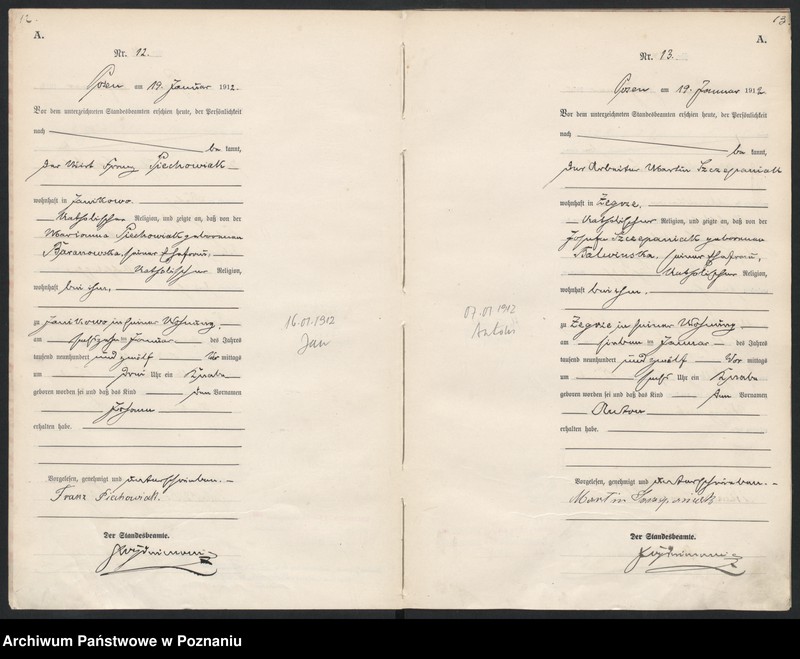 12
A.
Nr. 12.
Posen am 19. Januar 1912.
Vor dem unterzeichneten Standesbeamten erschien heute, der Persönlichkeit
nach
be kannt,
der Wirt Franz Piechowiak
wohnhaft in Janikowo.
Katholischer Religion, und zeigte an, daß von der
Marianna Piechowiak geborenen
Baranowska, seiner Ehefrau,
Katholischer Religion,
wohnhaft bei ihm,
zu Janikowo in seiner Wohnung,
am sechszehnten Januar des Jahres
tausend neunhundert und zwölf Vor mittags
um drei Uhr ein Knabe
geboren worden sei und daß das Kind den Vornamen
Johann
erhalten habe.
Vorgelesen, genehmigt und unterschrieben.
Franz Piechowiak.
Der Standesbeamte.
16.01.1912
Jan
13.
A.
Nr. 13.
Posen am 19. Januar 1912
Vor dem unterzeichneten Standesbeamten erschien heute, der Persönlichkeit
nach
be kannt,
der Arbeiter Martin Szczepaniak
wohnhaft in Żegrze,
Katholischer Religion, und zeigte an, daß von der
Josefa Szczepaniak geborenen
seiner Ehefrau,
Katholischer Religion,
wohnhaft bei ihm,
zu Żegrze in seiner Wohnung,
am sieben ten Januar des Jahres
tausend neunhundert und zwölf Vor mittags
um sechs Uhr ein Knabe
geboren worden sei und daß das Kind den Vornamen
Anton
erhalten habe.
Vorgelesen, genehmigt und unterschrieben.
Martin Szczepaniak
Der Standesbeamte.
07.01.1912
Antoni
Archiwum Państwowe w Poznaniu